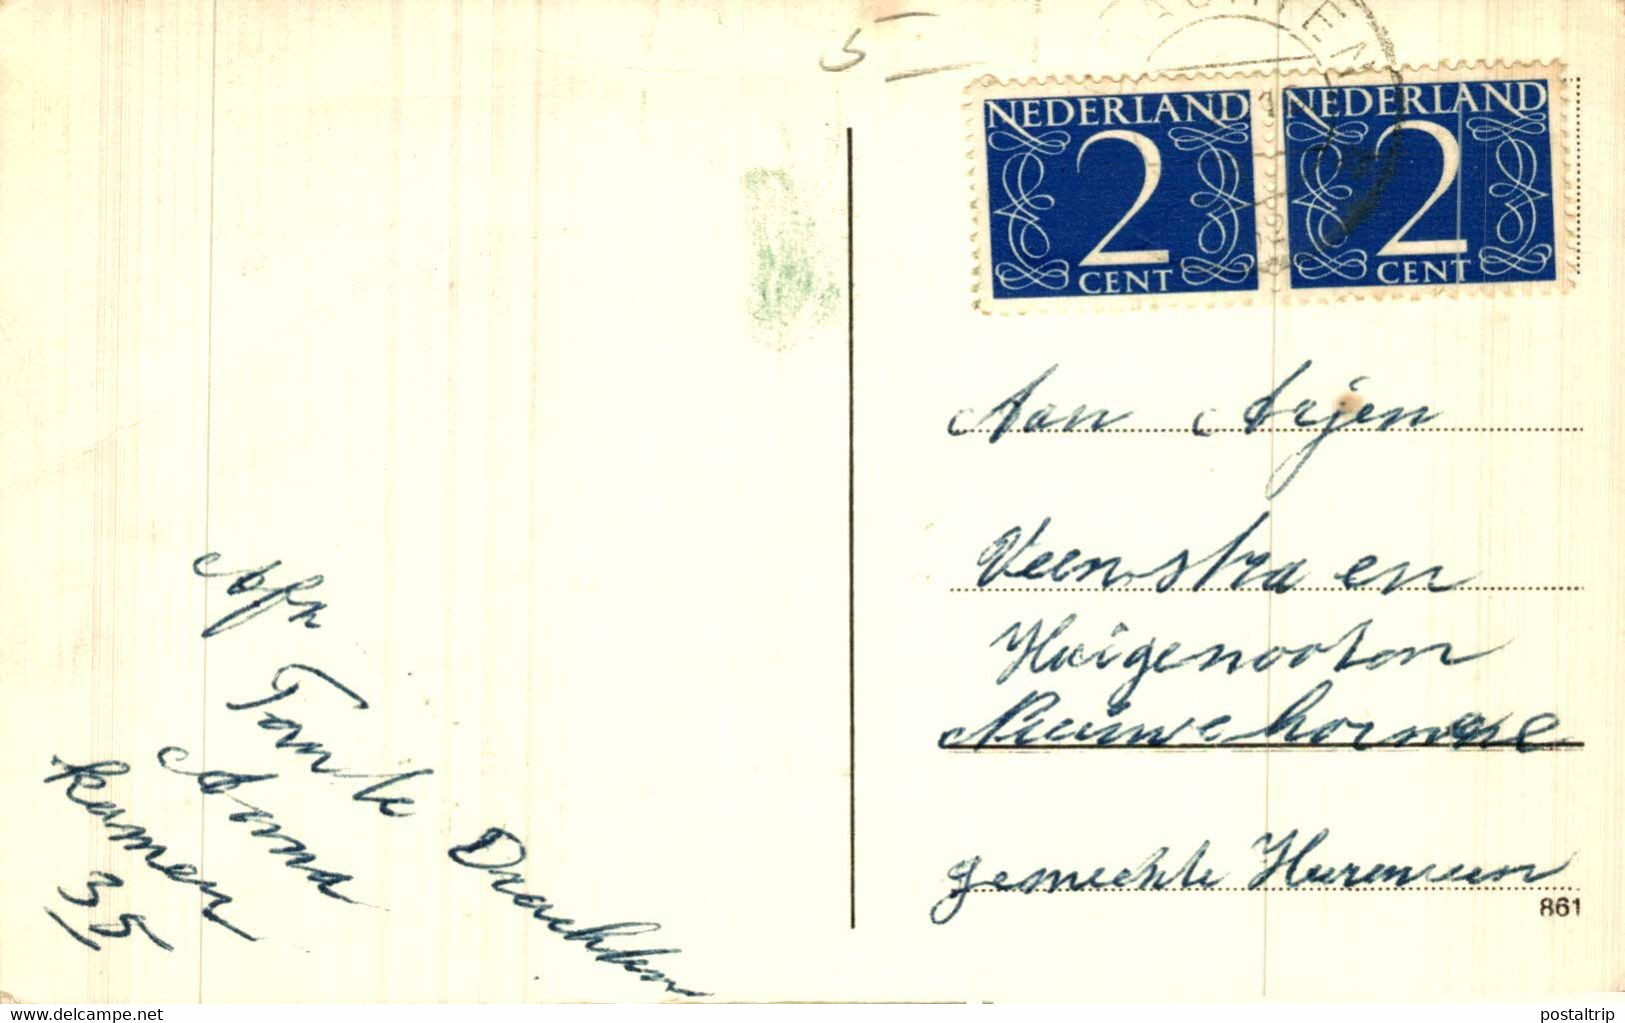 5
NEDERLAND
2
CENT
NEDERLAND
2
CENT
Aan Arjen
Veenstra en
Huigenooten
Nieuwehorne
gemeente Heerenveen
861
Afz
Tante
Anna
kamer
35
Drachten
delcampe.net
postaltrip